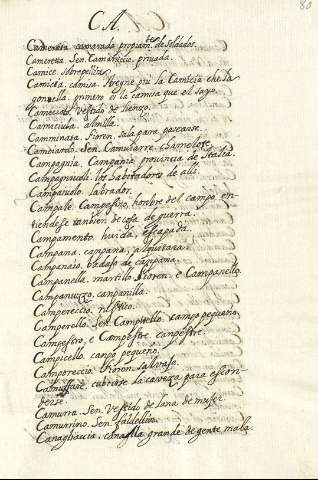 80
CA.
Camerata camarada propiam.te de soldados.
Camereta. Sen. Camarecio, privada.
Camice, sobrepelliz
Camicia, camisa. stregne piu la Camicia che la
gonnella. primero es la camisa que el sayo.
vestido de lienzo.
Camiciuola, almilla.
Camminata, Fioren. sala para passearse.
Sen. chamelote.
Campagnia, Campania provincia de Italia.
Campagnuoli, los habitadores de alli.
Campaiuolo, labrador.
Campale, Campesino, hombre del campo, en-
tiendese tanbien de cosa de guerra.
Campamento, huida, escapada.
Campana, canpana,
Campanaio, badajo de canpana.
Campanella, martillo. Fioren. e Campanello.
Campanuzzo, canpanilla.
Campereccio, rustico.
Camperello, Sen. Campitello, campo pequeno.
Campestro, e Campestre, canpestre.
Campicello, canpo pequeno.
Camporeccio, Fioren. salvaje.
cubrirse la caveza para escon-
derse.
Camurra, Sen. Vestido de lana de muger
Camurrino, Sen. faldellin.
Canagliaccia, canaglia grande de gente mala.